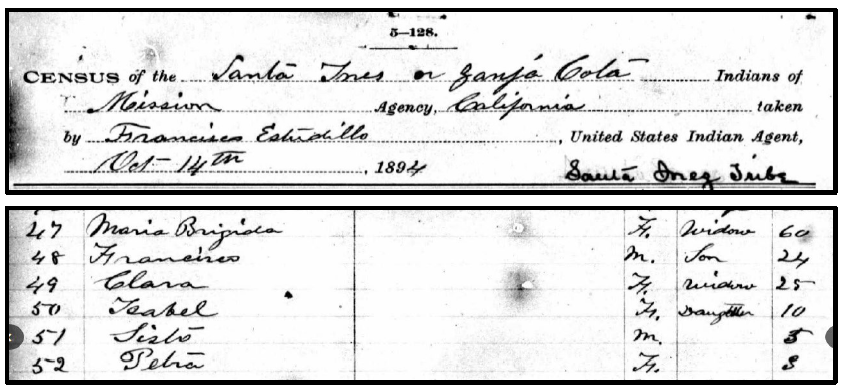 5—128.
CENSUS of the Santa Ines or Zanja Cota Indians of
Mission Agency, California taken
by Francisco Estudillo, United States Indian Agent,
Oct 14th, 1894 Santa Inez Tribe
47 Maria Brigida F. Widow 60
48 Francisco M. Son 24
49 Clara F. Widow 25
50 Isabel F. Daughter 10
51 Sisto M. 5
52 Petra F. 3